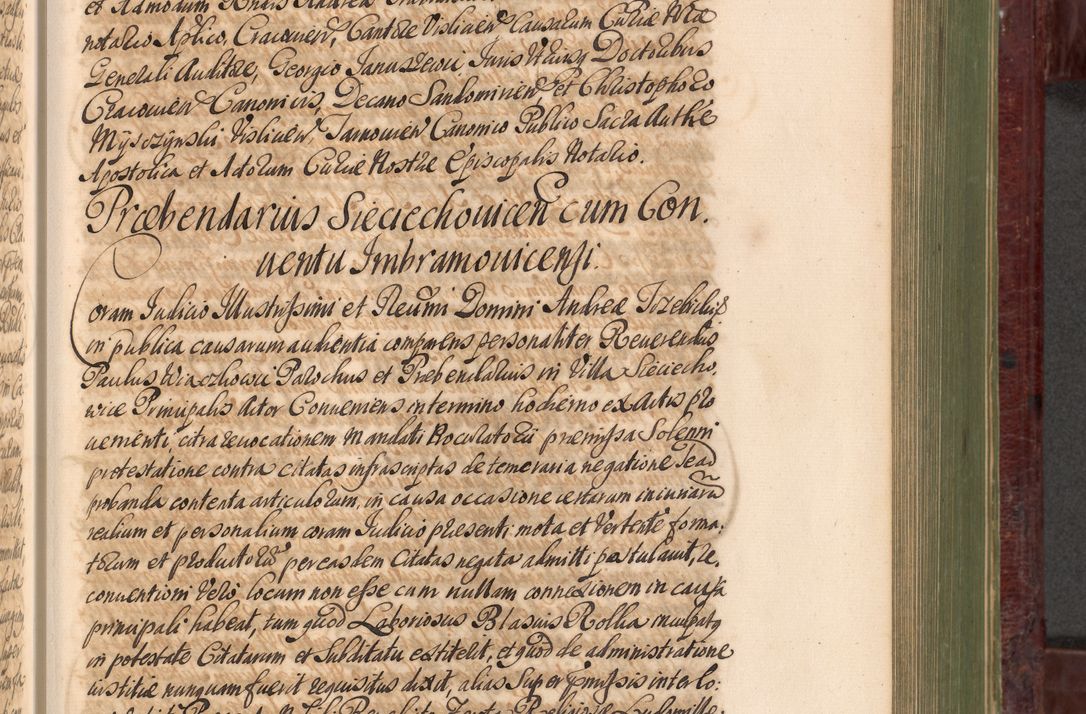 et Admodum
notario Aplico, Cracouien, Cantore Visliciae Causarum Curiae Nrae
Generali Auditore, Georgio Januszewic, Juris Utriusq Doctoribus
Cracouien Canonicis, Decano Sandomirien, et Christophoro
Myszczynski Vislicien, Tarnouien Canonico Publico Sacra Authe
Apostolica et Actorum Curiae Nostrae Episcopalis Notario.
Præbendarius Sieciechouicen cum Con.
uentu Imbramouicensi.
Coram Judicio Illustrissimi et Reumi Domini Andreæ Trzebicki
in publica causarum audientia comparens personaliter Reuerendus
Paulus Parochus et Præbendarius in Villa Sieciecho,
wice Principalis Actor Conueniens in termino hodierno ex Actis pro
uementi, citra reuocationem Mandati Procuratorii præmissa Solenni
protestatione contra citatas infrascriptas de temeraria negatione se ad
probanda contenta articulorum, in causa occasione certarum iniuriarū
realium et personalium coram Judicio præsenti mota et Vertente forma.
torum et productorū per easdem Citatas negata admitti postulauit, re,
conuentioni Vero locum non esse cum nullam connexionem in causa
principali habeat, tum quod Laboriosus Blasius Rollia inculpatq
in potestate Citatarum et Subditatu extiterit, et quod de administratione
iustitiæ nunquam fuerit requisitus dixit, alias Super præmissis interlo: